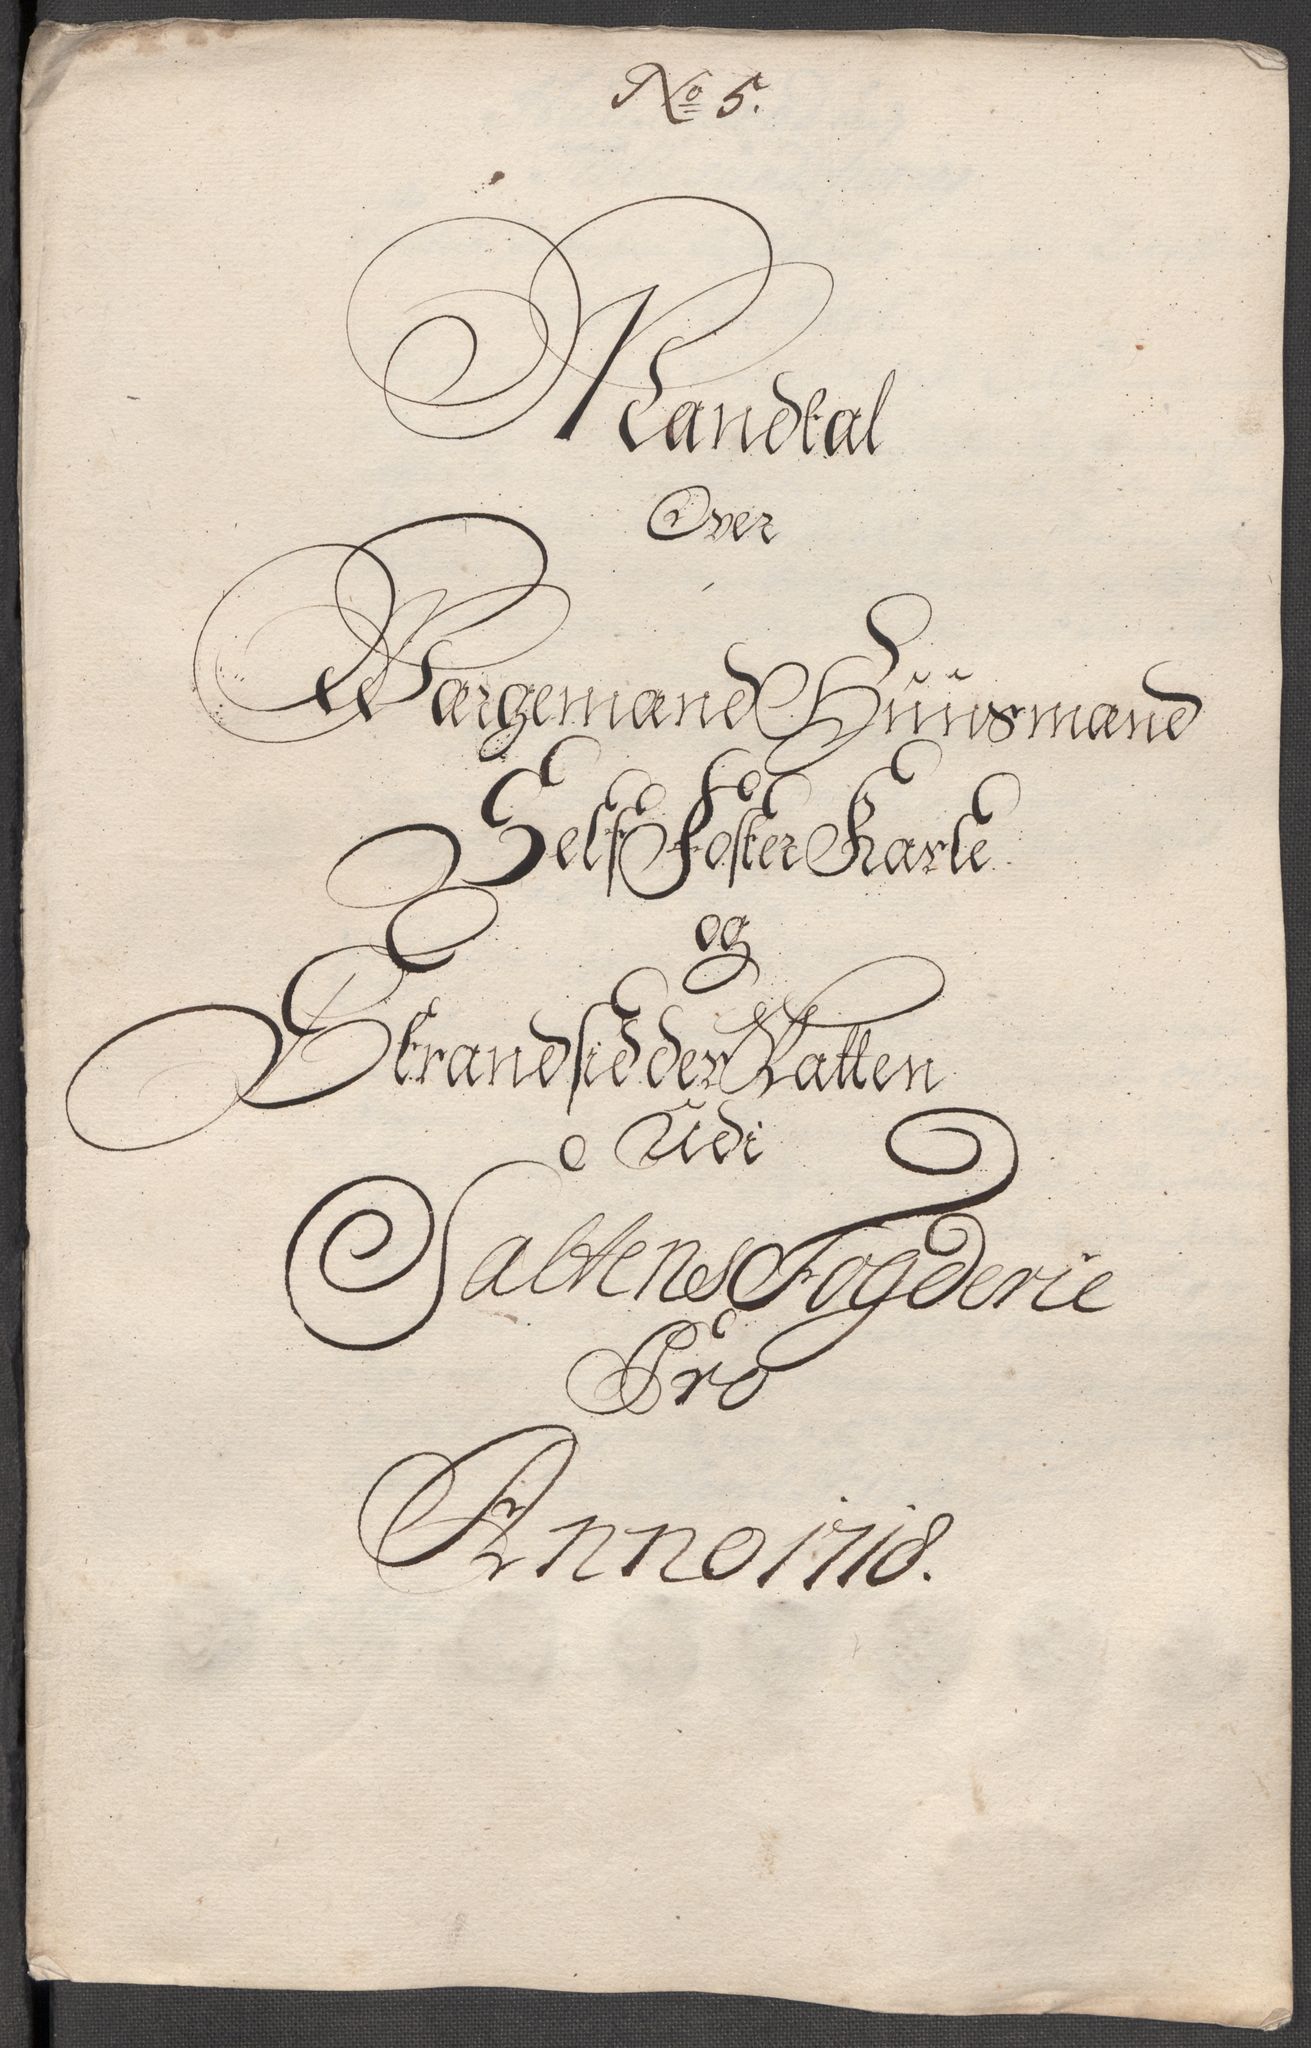 No 5.
Mandtal
Over
Wærgemænd Huusmænd
Self Foster Karle
og
Strandsidder Skatten
Udi
Saltens Fogderie
Pro
Anno 1718.